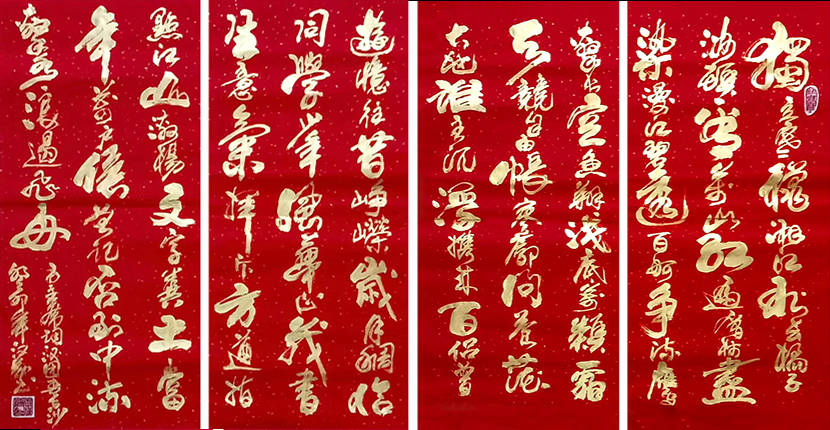 獨立寒穐湘江北去橘子
洲頭看萬山紅遍層林盡
染漫江碧透百舸爭流鷹
擊長空魚翔淺底萬類霜
天競自由悵寥廓問蒼茫
大地誰主沉浮攜來百侶曾
遊憶往昔崢嶸歲月稠恰
同學少年風華正茂書
生意氣揮斥方遒指
點江山激揚文字糞土當
年萬戶侯曾記否到中流
擊水浪遏飛舟
毛主席詞沁園春長沙
癸卯年